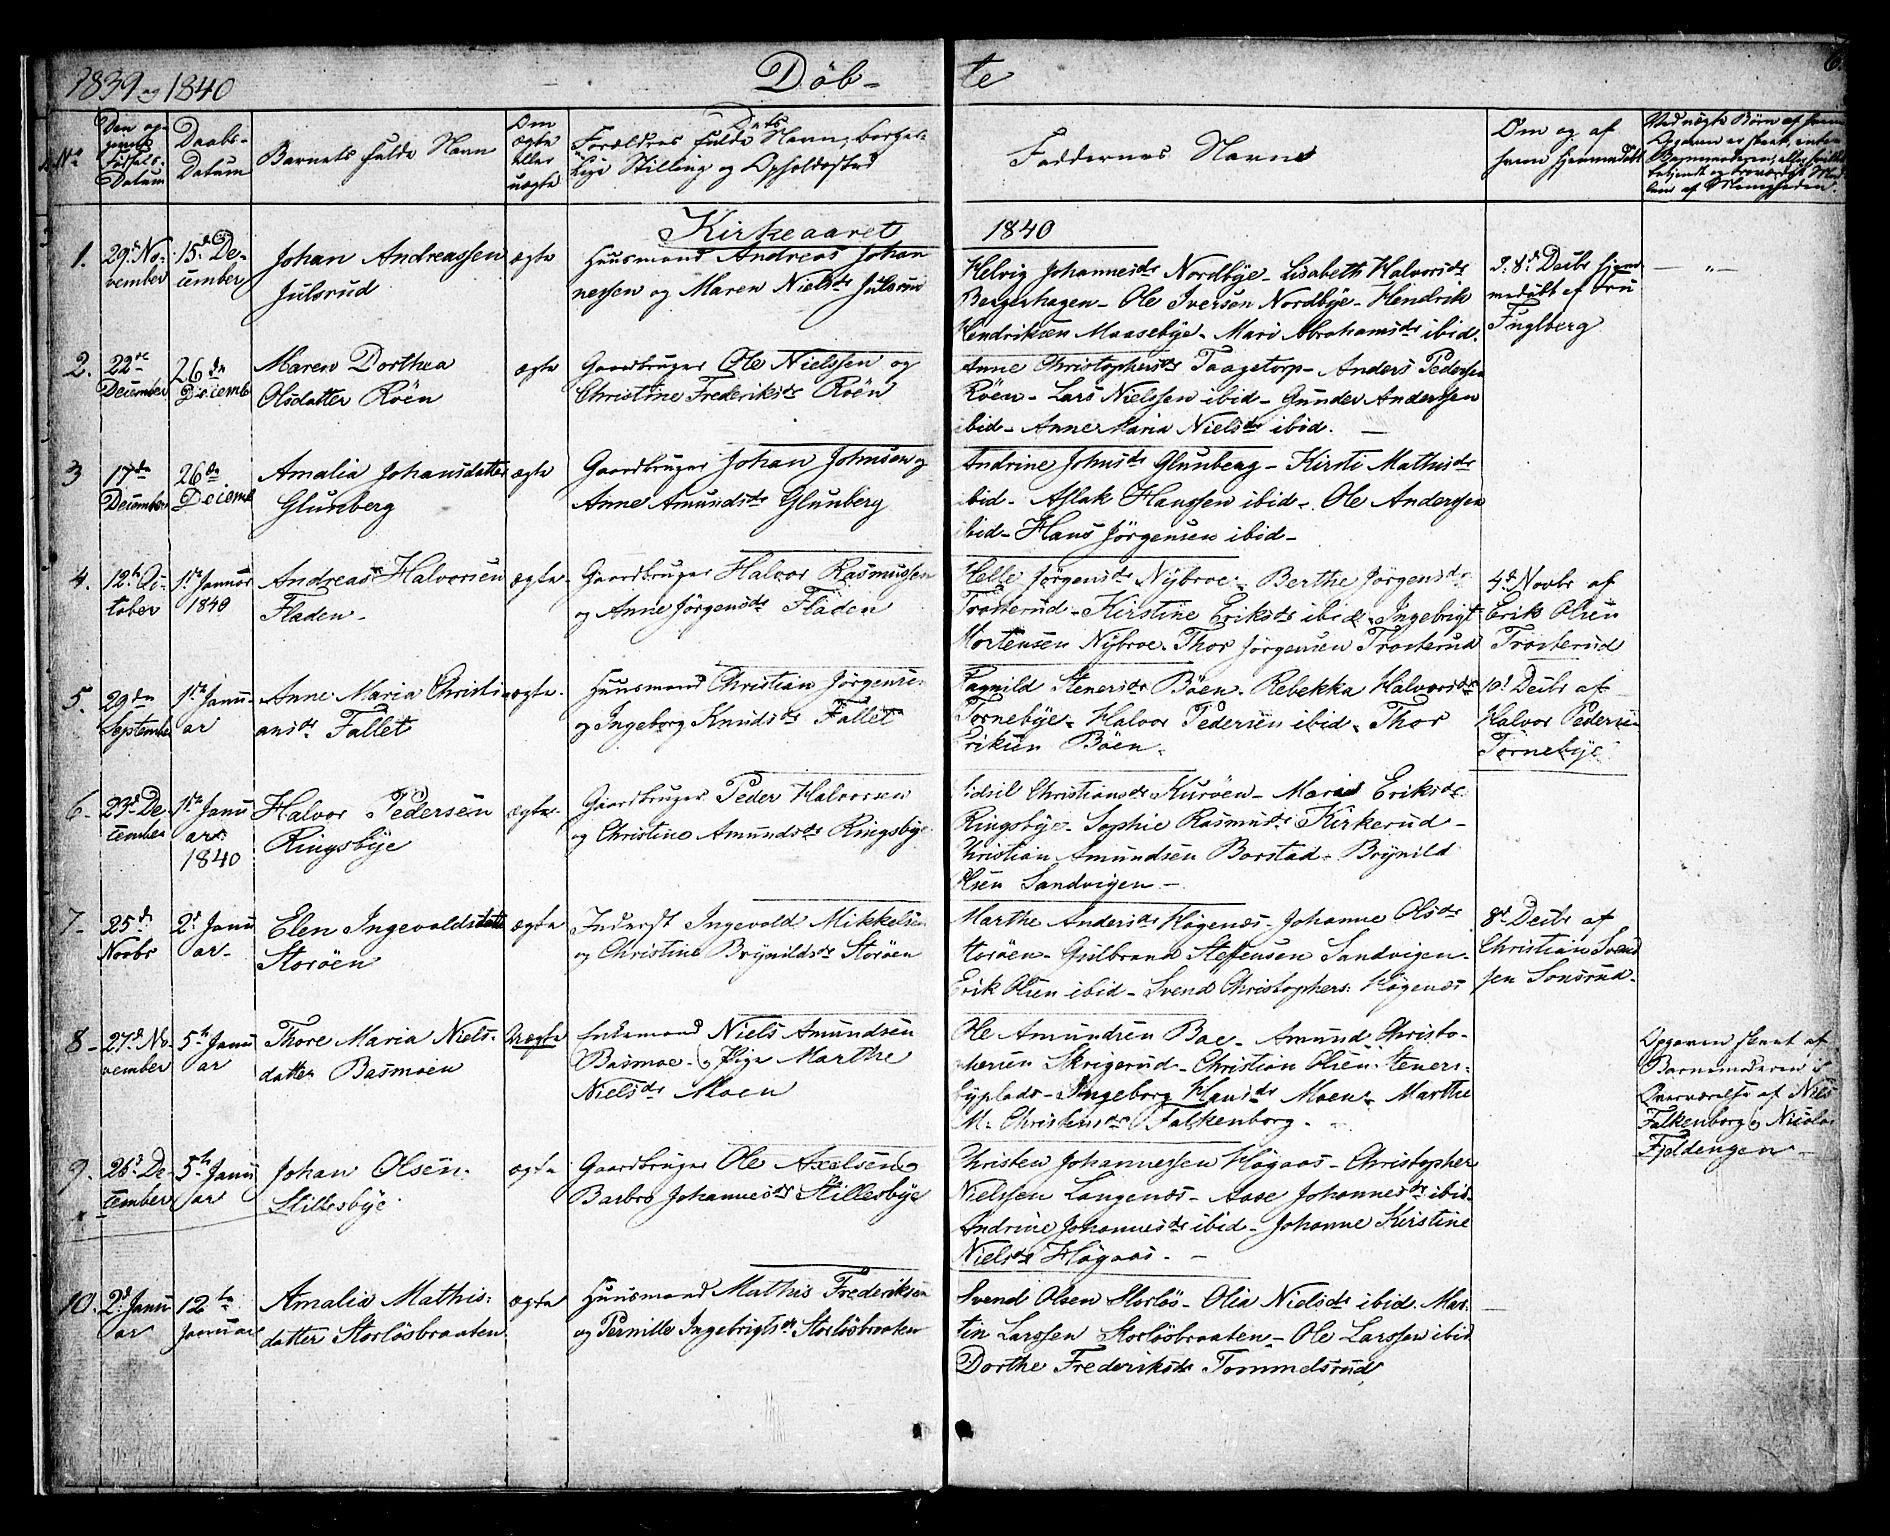 1839 og 1840
Döb-
te
6.
No
Den op-
givne
Födsels-
Datum
Daabs-
Datum
Barnets fulde Navn
Om
ægte
eller
uægte
Dets
Forældres fulde Navn, borger-
lige Stilling og Opholdssted
Faddernes Navne
Om og af
hvem hjemmedöbt
Ved uægte Börn af hvem
Opgaven er skeet, enten
Barnemoderen, eller hvilket
bekjendt og troværdigt Med-
lem af Menigheden.
Kirkeaaret
1840
1.
29d No-
vember
15d De-
cember
Johan Andreassen
Julsrud
ægte
Huusmand Andreas Johan
nessen og Maren Nielsdr Julsrud
Helvig Johannesdr Nordbye - Lisabeth Halvorsdr
Bergerhagen - Ole Iversen Nordbye - Hendrik
Hendriksen Maasebye - Mari Abrahamsdr ibid.
D. 8d Decbr hjem
medöbt af Fru
Fuglberg
— " —
2.
22de
December
26de
Decemb
Maren Dorthea
Olsdatter Röen
ægte
Gaardbruger Ole Nielssen og
Christine Frederiksdr Röen
Anne Christophersdr Taagetorp - Anders Pedersen
Röen - Lars Nielssen ibid - Gunder Anderssen
ibid - Anne Maria Nielsdr ibid. —
3
17de
December
26de
Decemb
Amalia Johansdatter
Glunberg
ægte
Gaardbruger Johan Johnsen og
Anne Amundsdr Glunberg
Andrine Johnsdr Glunberg - Kirsti Mathisdr
ibid - Aslak Hanssen ibid - Ole Anderssen
ibid - Hans Jörgensen ibid -
4.
12te Oc-
tober
1ste Januar
1840
Andreas Halvorsen
Fladen -
ægte
Gaardbruger Halvor Rasmussen
og Anne Jörgensdr Fladen
Helle Jörgensdr Nybroe - Berthe Jörgensdr
Trosterud - Kirstine Eriksdr ibid - Ingebrigt
Mortensen Nybroe - Thor Jörgensen Trosterud
4d Novbr af
Erik Olsen
Trosterud
5.
29de
September
1ste Janu-
ar
Anne Maria Christi-
ansdr Fallet
ægte
Huusmand Christian Jörgensen
og Ingeborg Knudsdr Fallet
Ragnild Stenersdr Böen - Rebekka Halvorsdr
Tornebye - Halvor Pedersen ibid - Thor
Eriksen Böen -
10d Decbr af
Halvor Pedersen
Tornebye
6-
23d De-
cember
1ste Janu
ar
1840
Halvor Pedersen
Ringsbye
ægte
Gaardbruger Peder Halvorsen
og Christine Amundsdr Ringsbye
Sidsil Christiansdr Kuröen - Maria Eriksdr
Ringsbye - Sophie Rasmusdr Kirkerud -
Christian Amundsen Borstad - Brynild
Olsen Sandvigen -
7-
25d
Novbr
2d Janu
ar -
Elen Ingevoldsdatter
Storöen
ægte
Inderst Ingevold Mikkelsen
og Christine Brynildsdr Storöen
Marthe Andersdr Högenæs - Johanne Olsdr
Storöen - Gulbrand Steffensen Sandvigen -
Erik Olsen ibid - Svend Christophers: Högenæs
8d Decbr af
Christian Svend
sen Sonsrud -
8-
27d No
vember
5te Janu
ar
Thore Maria Niels-
datter Basmoen
Uægte
Enkemand Niels Amundsen
Basmoe - og Pige Marthe
Nielsdr Moen
Ole Amundsen Bae - Amund Christo-
phersen Skrigerud - Christian Olsen Steners-
byplads - Ingeborg Hansdr Moen - Marthe
M: Christensdr Falkenborg -
Opgaven skeet af
Barnemoderen i
Overværelse af Niels
Falkenborg og Nicolai
Fjeldengen -
9.
26d De-
cember
5te Janu
ar
Johan Olsen
Stillesbye
ægte
Gaardbruger Ole Axelsen og
Barbro Johannesdr Stillesbye
Christen Johannessen Högaas - Christopher
Nielssen Langenæs - Aase Johannesdr ibid -
Andrine Johannesdr ibid - Johanne Kirstine
Nielsdr Högaas. -
10.
2d Janu
ar
12te
Januar
Amalia Mathis-
datter Storlösbraaten
ægte
Huusmand Mathis Frederiksen
og Pernille Ingebrigtsdr Storlösbraaten
Svend Olsen Storlös - Olia Nielsdr ibid - Mar-
tin Larssen Storlösbraaten - Ole Larssen ibid
Dorthe Frederiksdr Tommelsrud